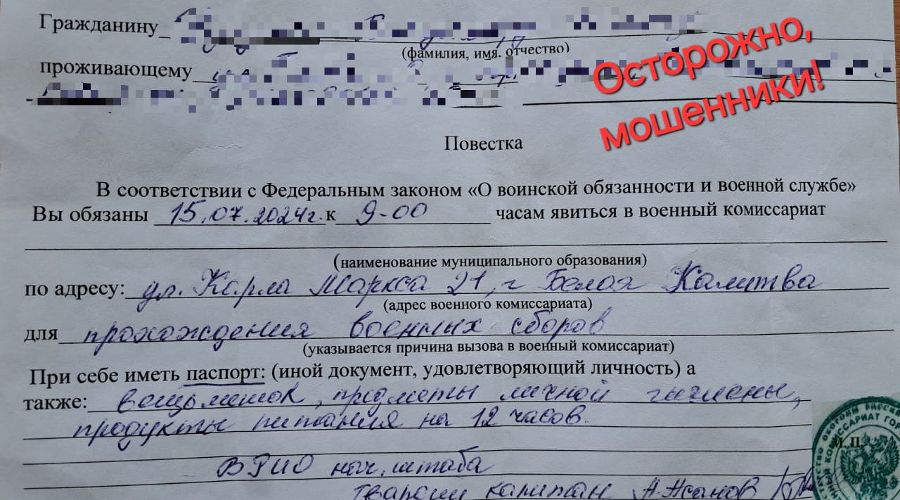 Гражданину
(фамилия, имя. отчество)
Осторожно,
мошенники!
проживающему
Повестка
В соответствии с Федеральным законом «О воинской обязанности и военной службе»
Вы обязаны 15.07.2024г. к 9-00 часам явиться в военный комиссариат
(наименование муниципального образования)
по адресу: ул. Карла Маркса 21, г Белая Калитва
(адрес военного комиссариата)
для прохождения военных сборов
(указывается причина вызова в военный комиссариат)
При себе иметь паспорт: (иной документ, удовлетворяющий личность) а
также: вещьмешок, предметы личной гигиены,
продукты питания на 12 часов.
М П
ВРИО нач. штаба
гвардии капитан